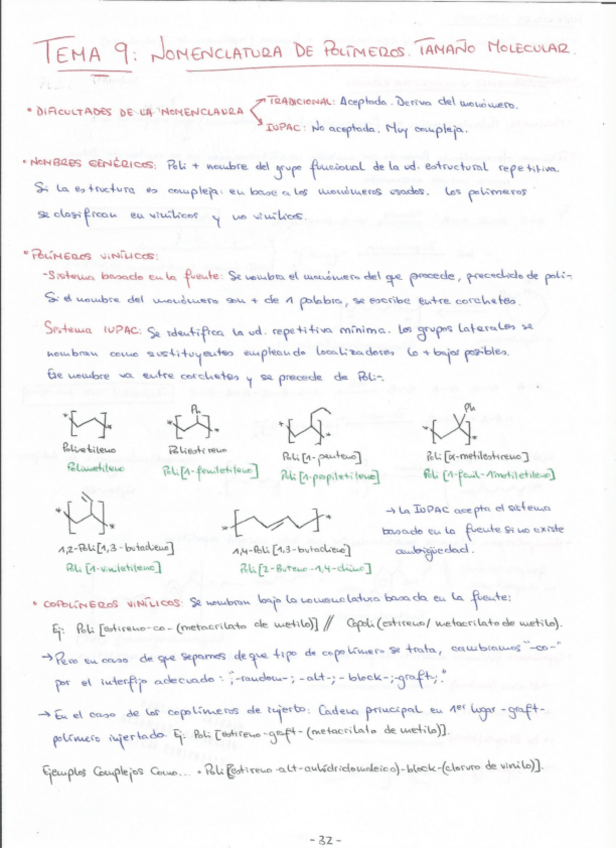 TEMA 9: NOMENCLATURA DE POLÍMEROS. TAMAÑO MOLECULAR.
• DIFICULTADES DE LA NOMENCLAURA
TRADICIONAL: Aceptada. Deriva del monómero.
IUPAC: No aceptada. Muy compleja.
• NOMBRES GENÉRICOS: Poli + nombre del grupo funcional de la ud. estructural repetitiva.
Si la estructura es compleja: en base a los monómeros usados. Los polímeros
se clasifican en vinílicos y no vinílicos.
• POLÍMEROS VINÍLICOS:
- Sistema basado en la fuente: Se nombra el monómero del que procede, precedido de poli-.
Si el nombre del monómero son + de 1 palabra, se escribe entre corchetes.
Sistema IUPAC: Se identifica la ud. repetitiva mínima. Los grupos laterales se
nombran como sustituyentes empleando localizadores lo + bajos posibles.
Ese nombre va entre corchetes y se precede de Poli-.
* * * Ph * * * * Ph *
Polietileno Poliestireno Poli[1-penteno] Poli[α-metilestireno]
Polimetileno Poli[1-feniletileno] Poli[1-propiletileno] Poli[1-fenil-1metiletileno]
* * * *
→ La IUPAC acepta el sistema
basado en la fuente si no existe
ambigüedad.
1,2-Poli[1,3-butadieno] 1,4-Poli[1,3-butadieno]
Poli[1-viniletileno] Poli[2-Buteno-1,4-diino]
• COPOLÍMEROS VINÍLICOS: Se nombran bajo la nomenclatura basada en la fuente:
Ej: Poli[estireno-co-(metacrilato de metilo)] // Copoli(estireno/metacrilato de metilo).
→ Pero en caso de que sepamos de que tipo de copolímero se trata, cambiamos "-co-"
por el interfijo adecuado: "-random-; -alt-; -block-; -graft-;."
→ En el caso de los copolímeros de injerto: Cadena principal en 1er lugar -graft-
polímero injertado. Ej: Poli[estireno-graft-(metacrilato de metilo)].
Ejemplos Complejos Como... • Poli[(estireno-alt-anhídridomaleico)-block-(cloruro de vinilo)].
- 32 -